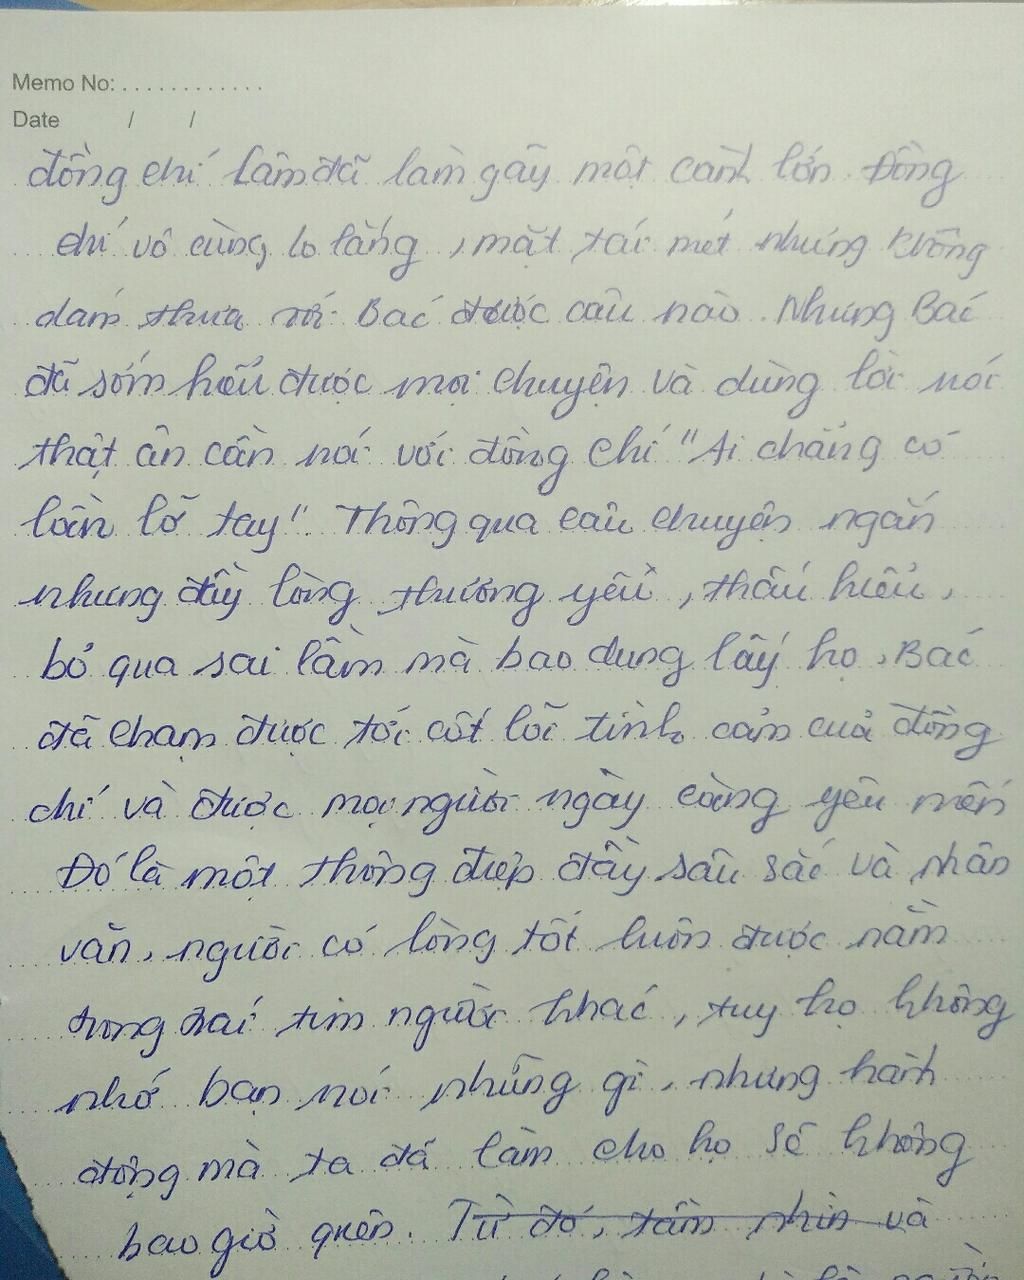 Memo No: . . . . . . . . . . . .
Date / /
đồng chí Lâm đã làm gãy một cành lớn. Đồng
chí vô cùng lo lắng, mặt tái mét nhưng không
dám thưa với Bác được câu nào. Nhưng Bác
đã sớm hiểu được mọi chuyện và dùng lời nói
thật ân cần nói với đồng chí "Ai chẳng có
lần lỡ tay". Thông qua câu chuyện ngắn
nhưng đầy lòng thương yêu, thấu hiểu,
bỏ qua sai lầm mà bao dung lấy họ, Bác
đã chạm được tới cốt lõi tình cảm của đồng
chí và được mọi người ngày càng yêu mến
Đó là một thông điệp đầy sâu sắc và nhân
văn, người có lòng tốt luôn được nằm
trong trái tim người khác, tuy họ không
nhớ bạn nói những gì, nhưng hành
động mà ta đã làm cho họ sẽ không
bao giờ quên. Từ đó, tầm nhìn và